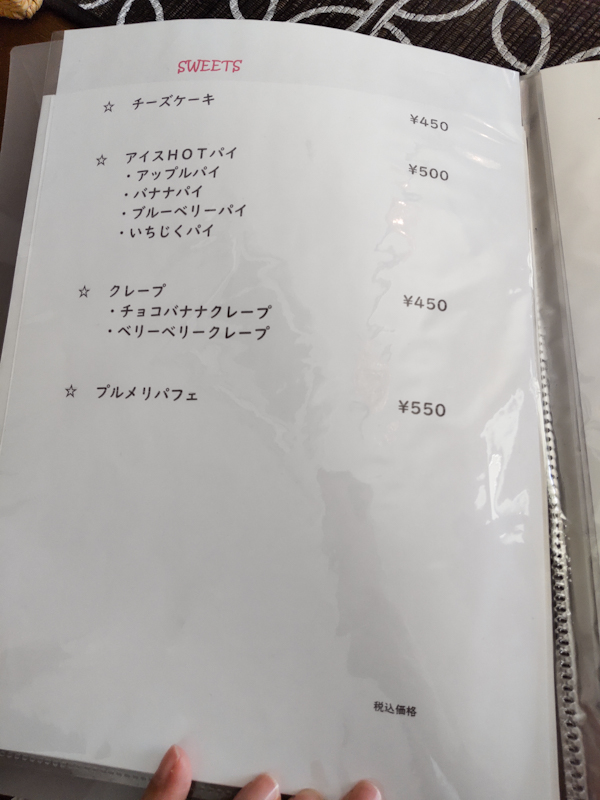 SWEETS
☆ チーズケーキ
¥450
☆ アイスＨＯＴパイ
¥500
・アップルパイ
・バナナパイ
・ブルーベリーパイ
・いちじくパイ
☆ クレープ
¥450
・チョコバナナクレープ
・ベリーベリークレープ
☆ プルメリパフェ
¥550
税込価格